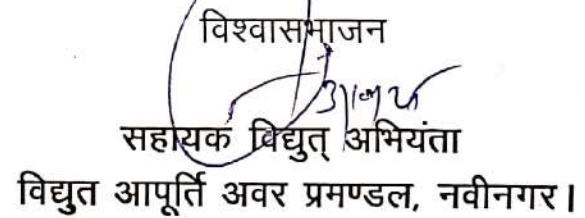 विश्वासभाजन
सहायक विद्युत् अभियंता
विद्युत आपूर्ति अवर प्रमण्डल, नवीनगर।